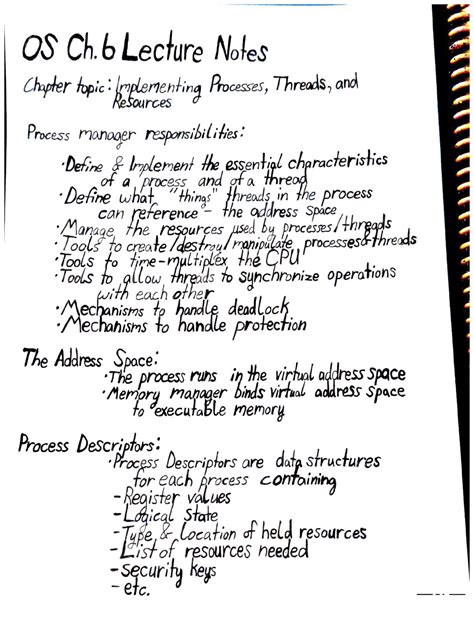 OS Ch.6 Lecture Notes
Chapter topic: Implementing Processes, Threads, and
Resources
Process manager responsibilities:
·Define & Implement the essential characteristics
of a process and of a thread
·Define what "things" threads in the process
can reference - the address space
·Manage the resources used by processes/threads
·Tools to create/destroy/manipulate processes&threads
·Tools to time-multiplex the CPU
·Tools to allow threads to synchronize operations
with each other
·Mechanisms to handle deadlock
·Mechanisms to handle protection
The Address Space:
·The process runs in the virtual address space
·Memory manager binds virtual address space
to executable memory
Process Descriptors:
·Process Descriptors are data structures
for each process containing
-Register values
-Logical State
-Type & Location of held resources
-List of resources needed
-Security keys
-etc.